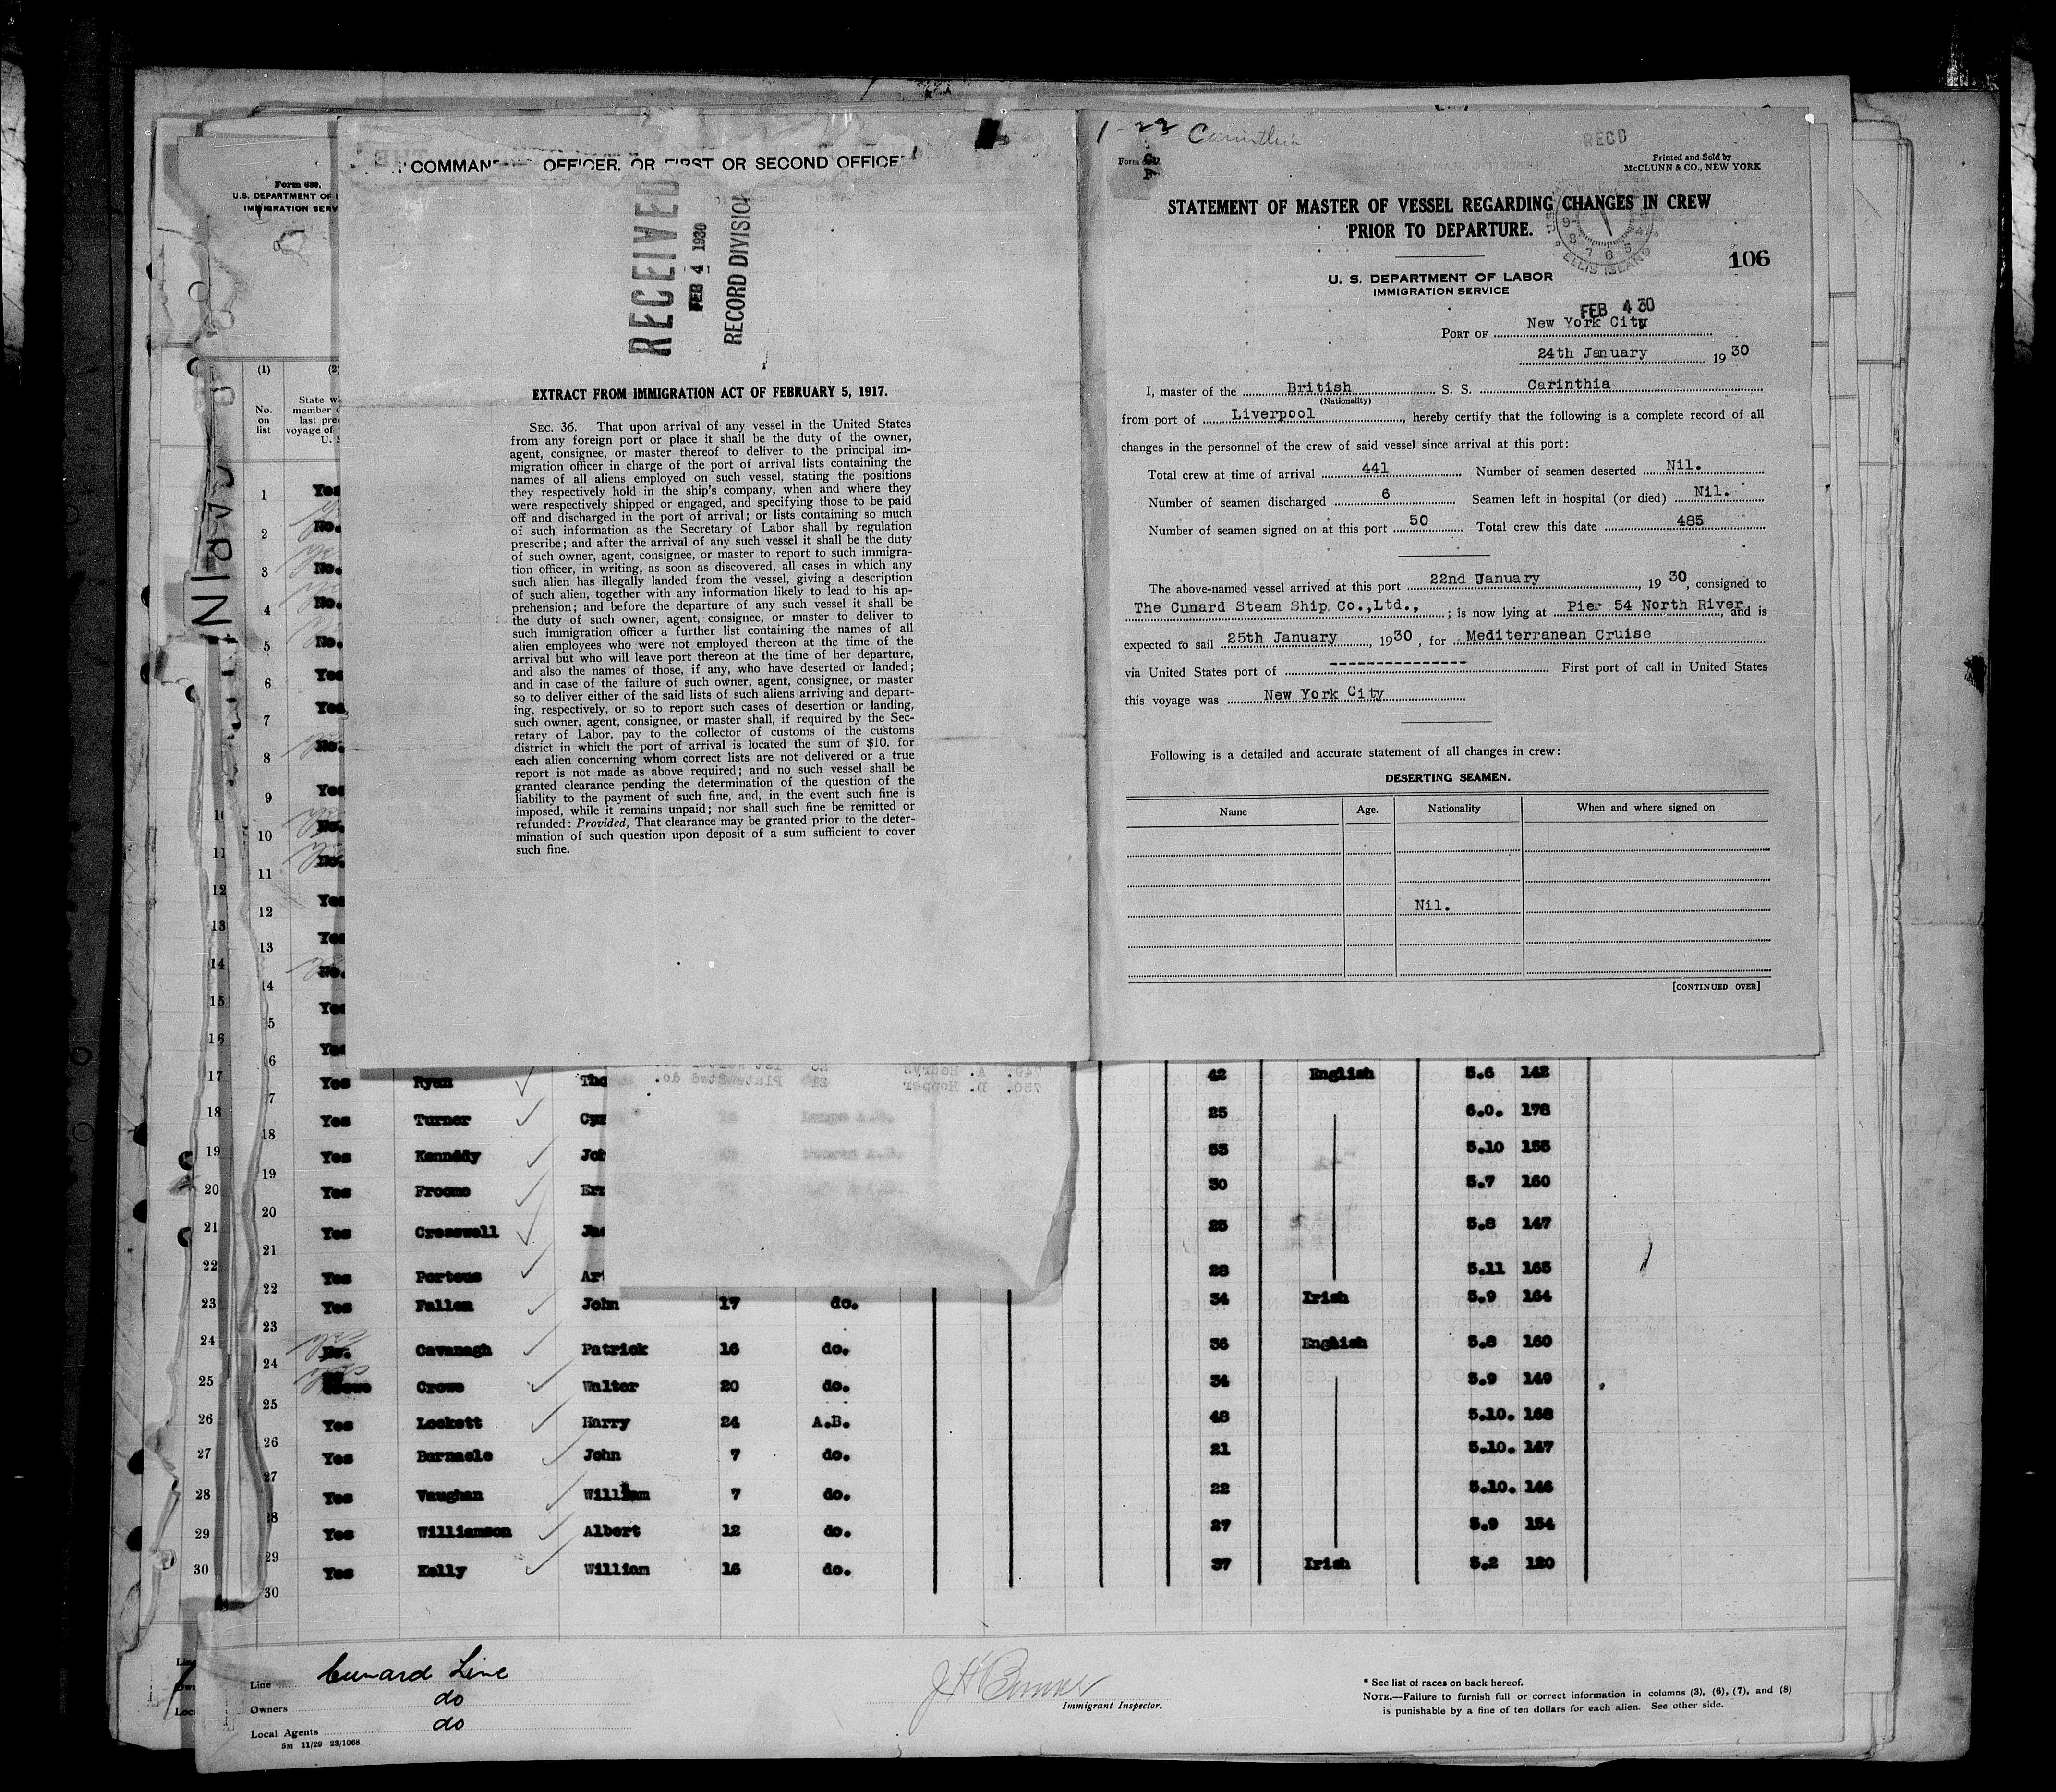 Form 680.
U.S. DEPARTMENT OF
IMMIGRATION SERV
(1)
No.
on
list
COMMAN OFFICER, OR FIRST OR SECOND OFFICE
RECEIVED
FEB 4 1930
RECORD DIVISION
EXTRACT FROM IMMIGRATION ACT OF FEBRUARY 5, 1917.
SEC. 36. That upon arrival of any vessel in the United States
from any foreign port or place it shall be the duty of the owner,
agent, consignee, or master thereof to deliver to the principal im-
migration officer in charge of the port of arrival lists containing the
names of all aliens employed on such vessel, stating the positions
they respectively hold in the ship's company, when and where they
were respectively shipped or engaged, and specifying those to be paid
off and discharged in the port of arrival; or lists containing so much
of such information as the Secretary of Labor shall by regulation
prescribe; and after the arrival of any such vessel it shall be the duty
of such owner, agent, consignee, or master to report to such immigra-
tion officer, in writing, as soon as discovered, all cases in which any
such alien has illegally landed from the vessel, giving a description
of such alien, together with any information likely to lead to his ap-
prehension; and before the departure of any such vessel it shall be
the duty of such owner, agent, consignee, or master to deliver to
such immigration officer a further list containing the names of all
alien employees who were not employed thereon at the time of the
arrival but who will leave port thereon at the time of her departure,
and also the names of those, if any, who have deserted or landed;
and in case of the failure of such owner, agent, consignee, or master
so to deliver either of the said lists of such aliens arriving and depart-
ing, respectively, or so to report such cases of desertion or landing,
such owner, agent, consignee, or master shall, if required by the Sec-
retary of Labor, pay to the collector of customs of the customs
district in which the port of arrival is located the sum of $10. for
each alien concerning whom correct lists are not delivered or a true
report is not made as above required; and no such vessel shall be
granted clearance pending the determination of the question of the
liability to the payment of such fine, and, in the event such fine is
imposed, while it remains unpaid; nor shall such fine be remitted or
refunded: Provided, That clearance may be granted prior to the deter-
mination of such question upon deposit of a sum sufficient to cover
such fine.
1-22 Carinthia
RECD
Form
Printed and Sold by
McCLUNN & CO., NEW YORK
STATEMENT OF MASTER OF VESSEL REGARDING CHANGES IN CREW
PRIOR TO DEPARTURE.
ELLIS ISLAND
106
U. S. DEPARTMENT OF LABOR
IMMIGRATION SERVICE
FEB 4 30
PORT OF New York City
24th January 1930
I, master of the British S. S. Carinthia
(Nationality)
from port of Liverpool, hereby certify that the following is a complete record of all
changes in the personnel of the crew of said vessel since arrival at this port:
Total crew at time of arrival 441 Number of seamen deserted Nil.
Number of seamen discharged 6 Seamen left in hospital (or died) Nil.
Number of seamen signed on at this port 50 Total crew this date 485
The above-named vessel arrived at this port 22nd January, 1930, consigned to
The Cunard Steam Ship Co.,Ltd.,; is now lying at Pier 54 North River, and is
expected to sail 25th January, 1930, for Mediterranean Cruise
via United States port of --------------- First port of call in United States
this voyage was New York City
Following is a detailed and accurate statement of all changes in crew:
DESERTING SEAMEN.
Name Age. Nationality When and where signed on
Nil.
[CONTINUED OVER]
Yes Ryan Tho 42 English 5.6 142
Yes Turner 25 6.0. 178
Yes Kennedy Joh 33 5.10 155
Yes Froome 30 5.7 160
Yes Cresswell 25 5.8 147
Yes Porteus 28 5.11 165
Yes Fallon John 17 do. 34 Irish 5.9 164
No. Cavanagh Patrick 16 do. 36 English 5.8 160
Crowe Walter 20 do. 34 5.9 149
Yes Lockett Harry 24 A.B. 48 5.10. 168
Yes Barnacle John 7 do. 21 5.10. 147
Yes Vaughan William 7 do. 22 5.10. 146
Yes Williamson Albert 12 do. 27 5.9 154
Yes Kelly William 16 do. 37 Irish 5.2 120
Line Cunard Line
Owners do
Local Agents do
5M 11/29 23/1068
Immigrant Inspector.
* See list of races on back hereof.
NOTE.—Failure to furnish full or correct information in columns (3), (6), (7), and (8)
is punishable by a fine of ten dollars for each alien. See other side.